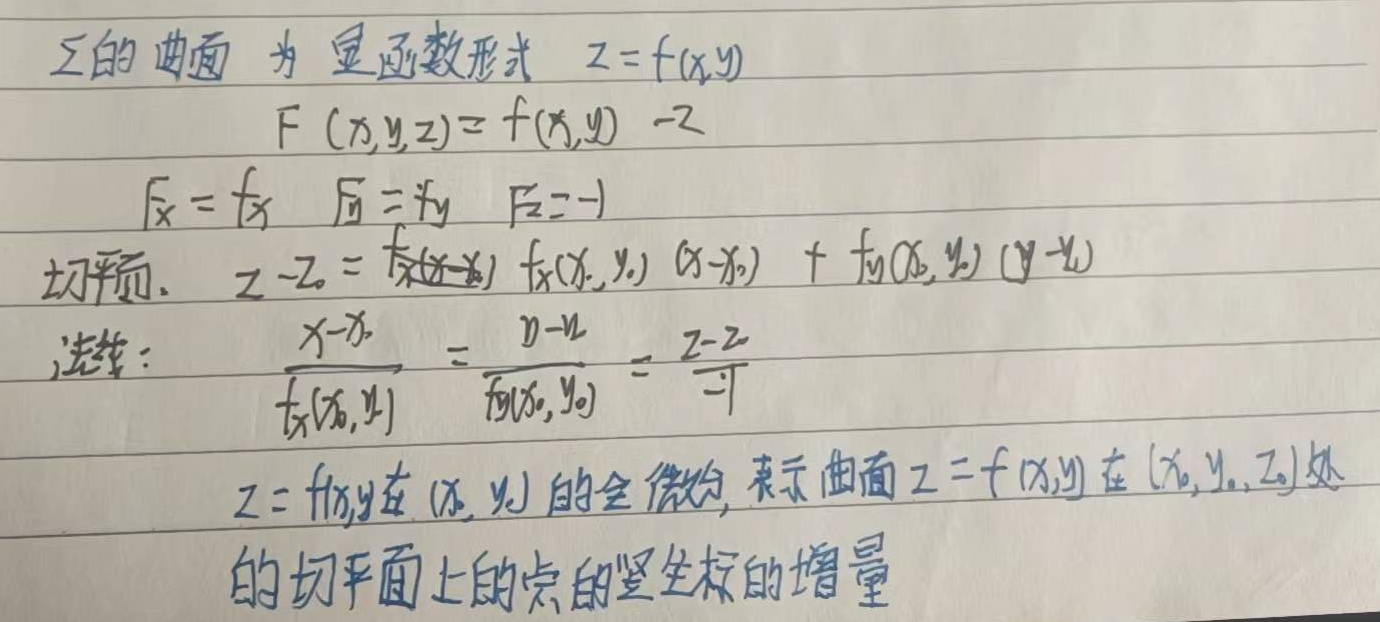 Σ的曲面 为 显函数形式 z=f(x,y)
F(x,y,z)=f(x,y)-z
Fx=fx Fy=fy Fz=-1
切平面. z-z₀=fx(x₀,y₀)(x-x₀)+fy(x₀,y₀)(y-y₀)
法线: (x-x₀)/fx(x₀,y₀)=(y-y₀)/fy(x₀,y₀)=(z-z₀)/-1
z=f(x,y在(x₀,y₀)的全微分,表示曲面z=f(x,y)在(x₀,y₀,z₀)处
的切平面上的点的竖坐标的增量